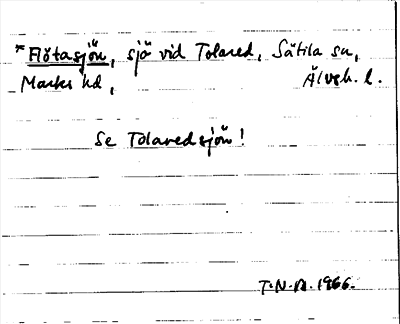 *Flötasjön, sjö vid Tolared, Sätila sn,
Marks hd, Älvsb. l.
Se Tolaredsjön!
T.N.A. 1966.